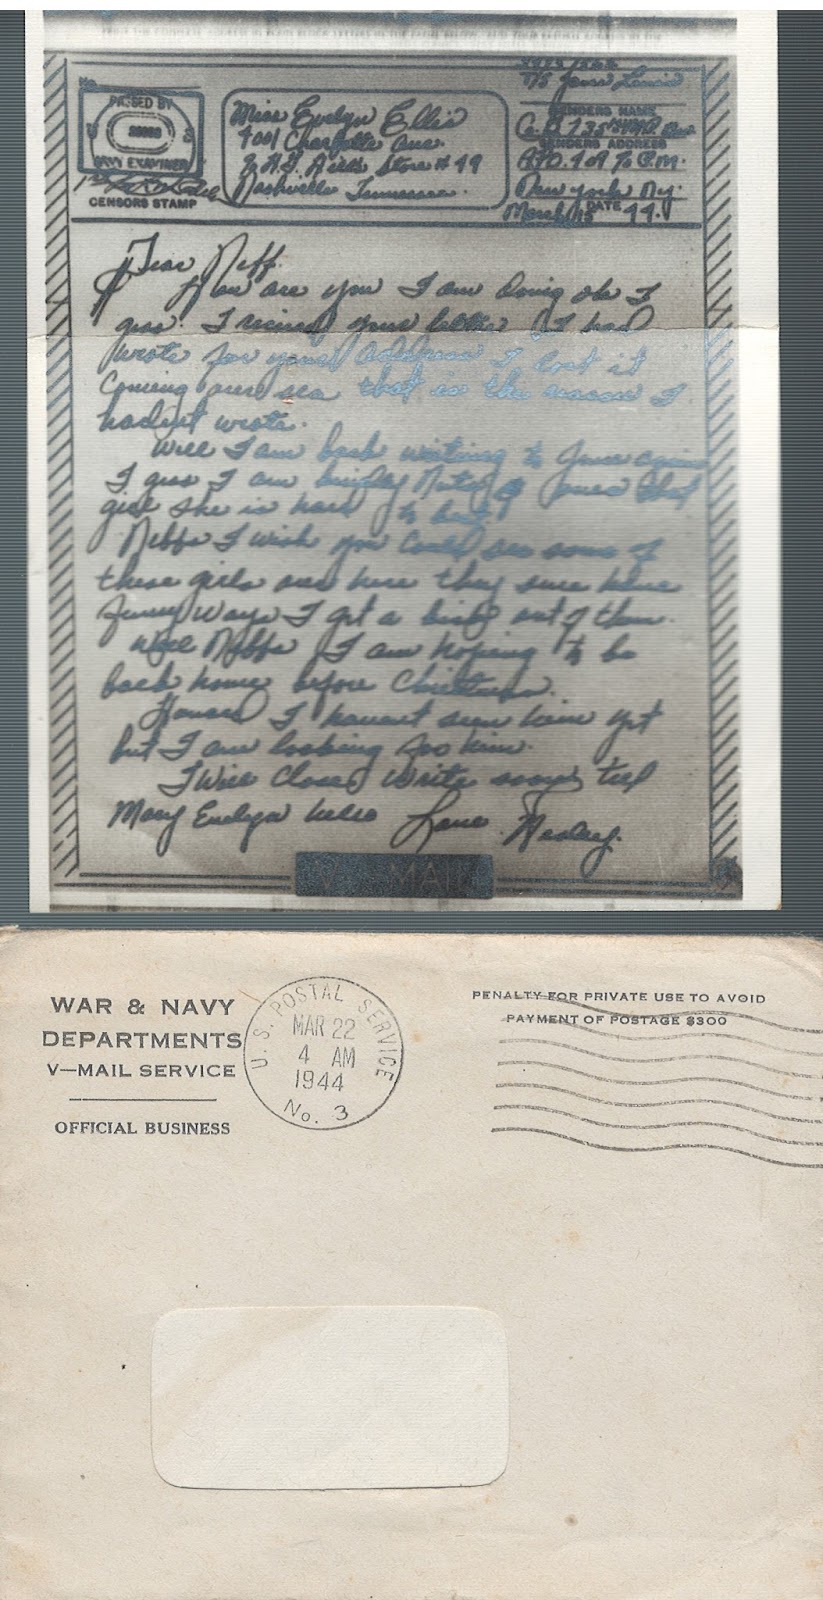 No.
PASSED BY
U S
NAVY EXAMINER
CENSORS STAMP
Miss Evelyn Ellis
4001 Charlotte Ave.
H.G. Hills Store # 49
Nashville Tennessee.
T/5 James Lewis
SENDERS NAME
Co. B 135
SENDERS ADDRESS
A.P.O. 709 % P.M.
New York N.y.
DATE
March 15 44.
Dear Neff.
How are you I am doing ok I
gess. I recived your letter I had
wrote for your address I lost it
Coming over sea that is the reason I
hadent wrote.
Will I am back writing to June again
I gess I am June that
girl she is hard to beat.
Neffe I wish you could see some of
these girls over here they sure have
funny ways I get a kick out of them.
Well Neffe I am hoping to be
back home before Christmas.
Howard I havent seen him yet
but I am looking for him.
I Will Close Write soon tell
Mary Evelyn hello Love. Wesley.
V - MAIL
WAR & NAVY
DEPARTMENTS
V—MAIL SERVICE
OFFICIAL BUSINESS
U. S. POSTAL SERVICE
MAR 22
4 AM
1944
No. 3
PENALTY FOR PRIVATE USE TO AVOID
PAYMENT OF POSTAGE $300